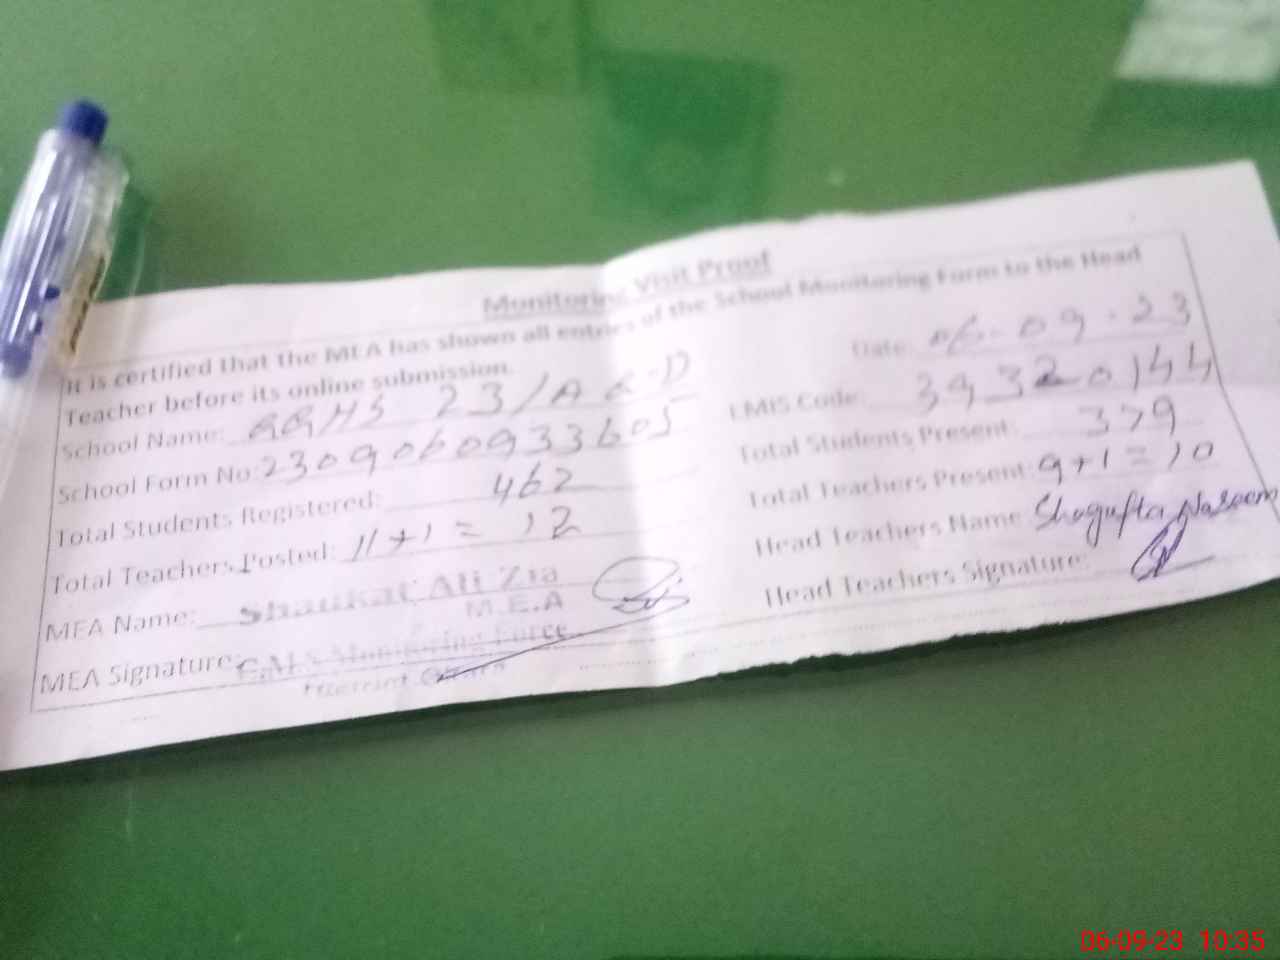 Monitoring Visit Proof
It is certified that the MEA has shown all entries of the School Monitoring Form to the Head
Teacher before its online submission.
Date: 06-09-23
School Name: GGHS 23/A
EMIS Code: 39320144
School Form No: 230906093605
Total Students Present: 379
Total Students Registered: 462
Total Teachers Present: 9+1=10
Total Teachers Posted: 11+1=12
Head Teachers Name: Shagufta Naseem
MEA Name: Shaukat Ali Zia
M.E.A
Head Teachers Signature:
MEA Signature: Monitoring Force
District Okara
06-09-23 10:35